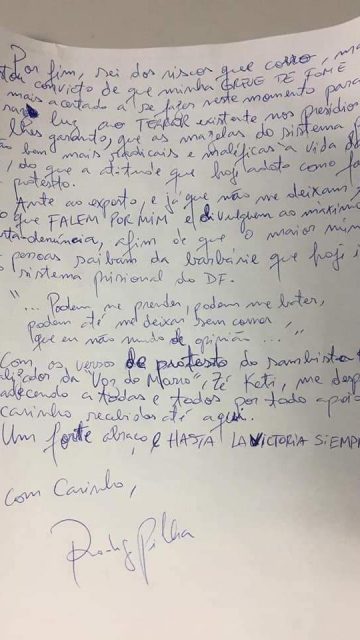 Por fim, sei dos riscos que corro, ma
convicto de que minha GREVE DE FOME
mais acertado a se fazer neste momento para
luz ao TERROR existente nos presídios
lhes garanto, que as mazelas do sistema p
bem mais radicais e maléficas a vida d
, do que a atitude que hoje adoto como fo
protesto.
Ante ao exposto, e já que não me deixam
que FALEM POR MIM e divulguem ao máximo
ta-denúncia, afim de que o maior núm
pessoas saibam da barbárie que hoje i
sistema prisional do DF.
"... Podem me prender, podem me bater,
podem até me deixar sem comer,
que eu não mudo de opinião ..."
Com os versos de protesto do sambista
da "Voz do Morro", Zé Keti, me desp
adecendo a todas e todos por todo apoio
carinho recebidos até aqui.
Um forte abraço, e HASTA LA VICTORIA SIEMP
com Carinho,
Pilha